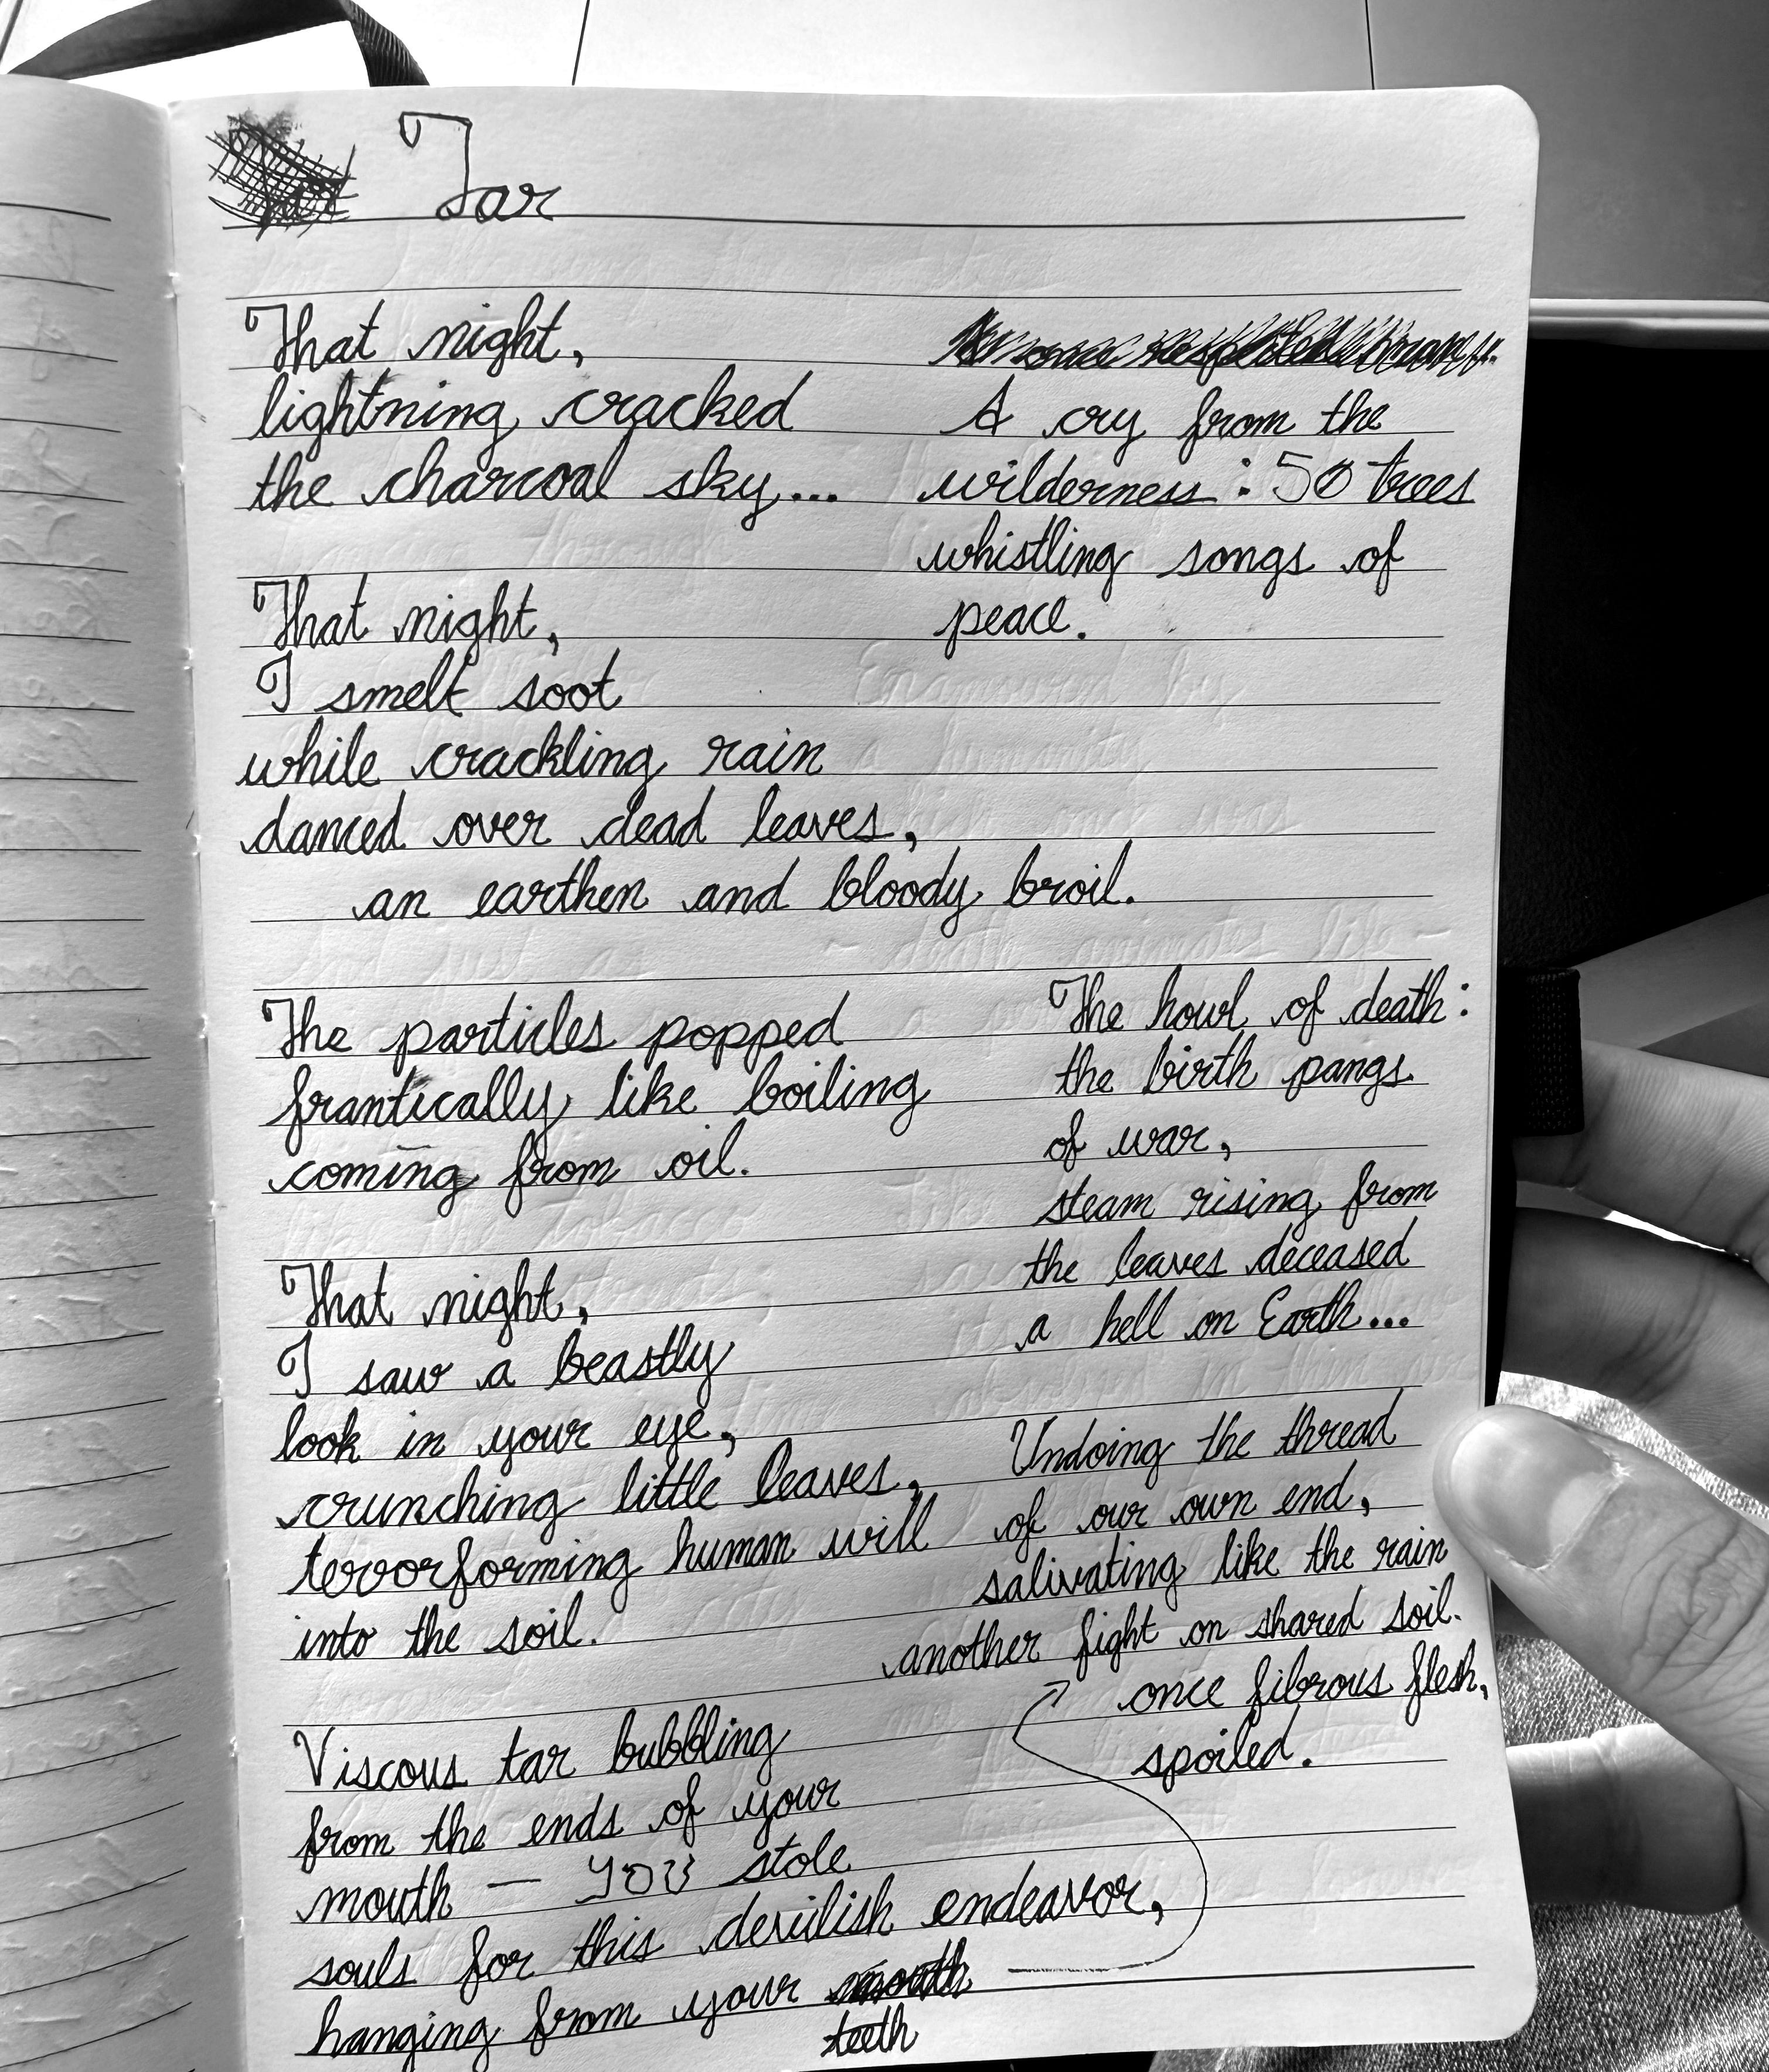 Tar
That night,
lightning cracked
the charcoal sky...
That night,
I smelt soot
while crackling rain
danced over dead leaves,
an earthen and bloody broil.
The particles popped
frantically like boiling
coming from oil.
That night,
I saw a beastly
look in your eye,
crunching little leaves,
terrorforming human will
into the soil.
Viscous tar bubbling
from the ends of your
mouth — YOU stole
souls for this devilish endeavor,
hanging from your mouth
teeth
A cry from the
wilderness: 50 trees
whistling songs of
peace.
The howl of death:
the birth pangs
of war,
steam rising from
the leaves deceased
a hell on Earth...
Undoing the thread
of our own end,
salivating like the rain
another fight on shared soil.
once fibrous flesh,
spoiled.